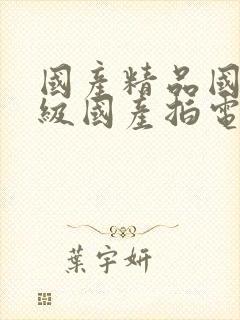 國產精品國
級國產拍電
葉宇妍